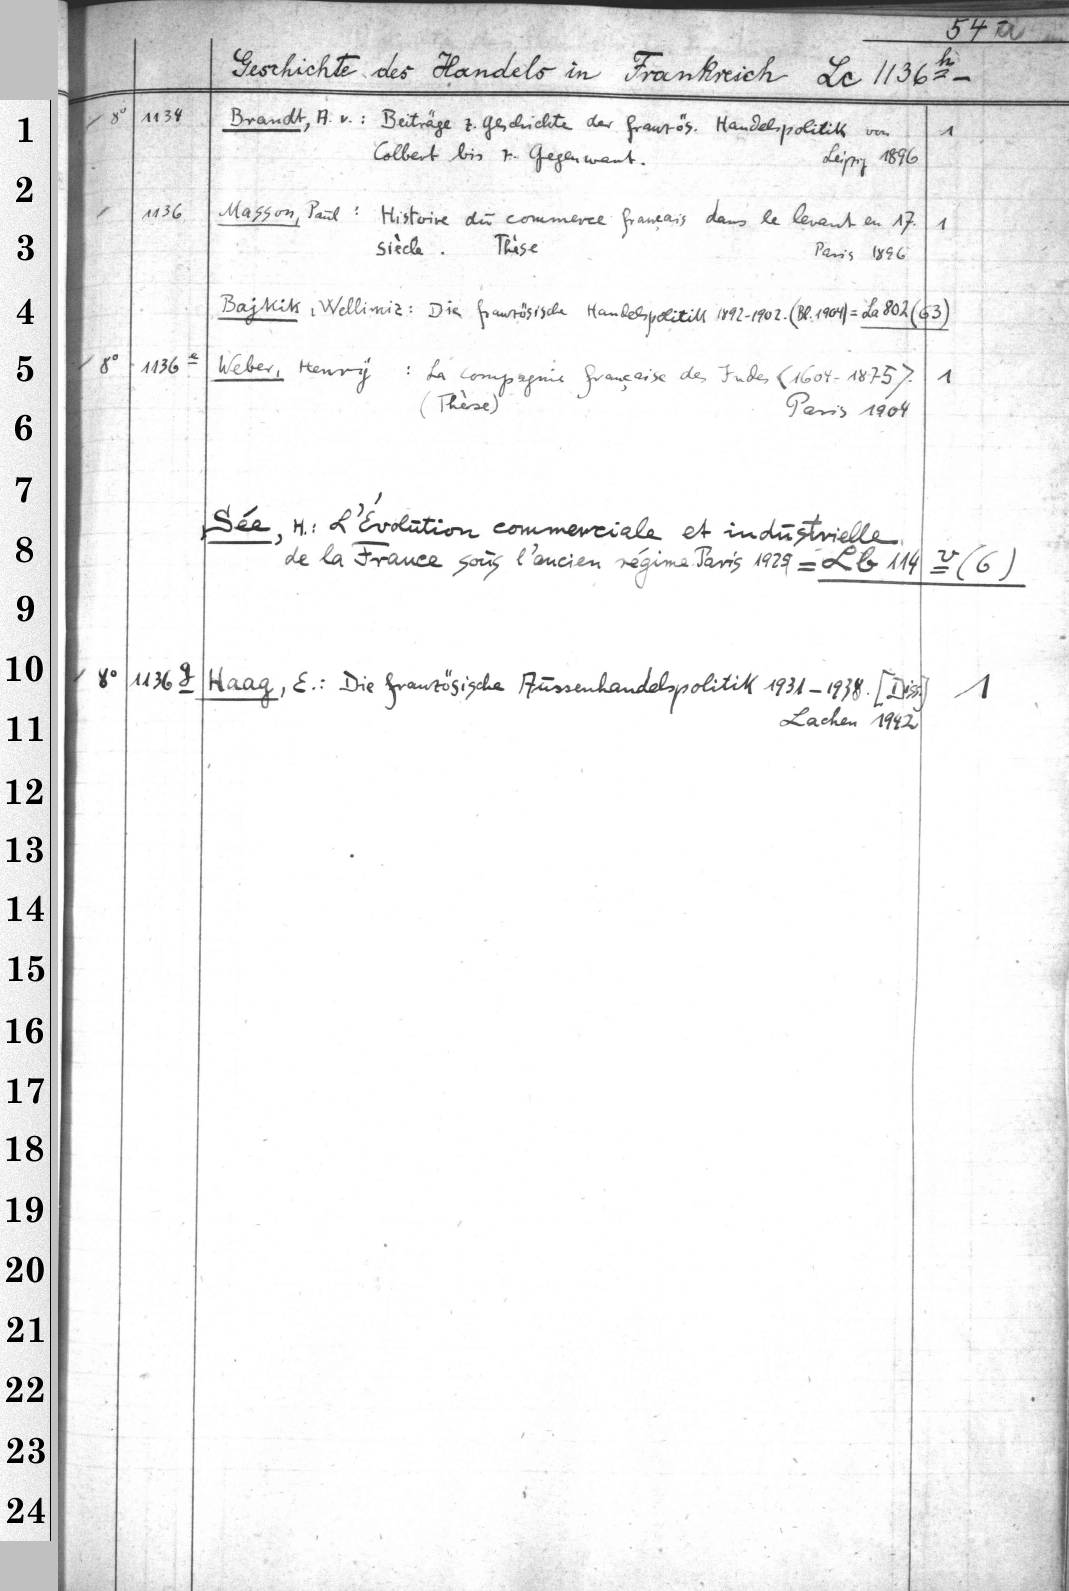 54 a
Geschichte des Handels in Frankreich Lc 1136 h -
1 8° 1134 Brandt, A. v.: Beiträge z. Geschichte der französ. Handelspolitik von 1
Colbert bis z. Gegenwart. Leipzig 1896
2
1136 Masson, Paul: Histoire du commerce français dans le levant en 17. 1
3 siècle. Thèse Paris 1896
4 Bajkik, Wellimiz: Die französische Handelspolitik 1892-1902. (Bl. 1904) = La 802 (63)
5 8° 1136 e Weber, Henry : La compagnie française des Indes (1604-1875). 1
(Thèse) Paris 1904
6
7
Sée, H.: L'Évolution commerciale et industrielle
8 de la France sous l'ancien régime. Paris 1925 = Lb 114 v (6)
9
10 8° 1136 g Haag, E.: Die französische Aussenhandelspolitik 1931-1938. [Diss] 1
11 Lachen 1942
12
13
14
15
16
17
18
19
20
21
22
23
24